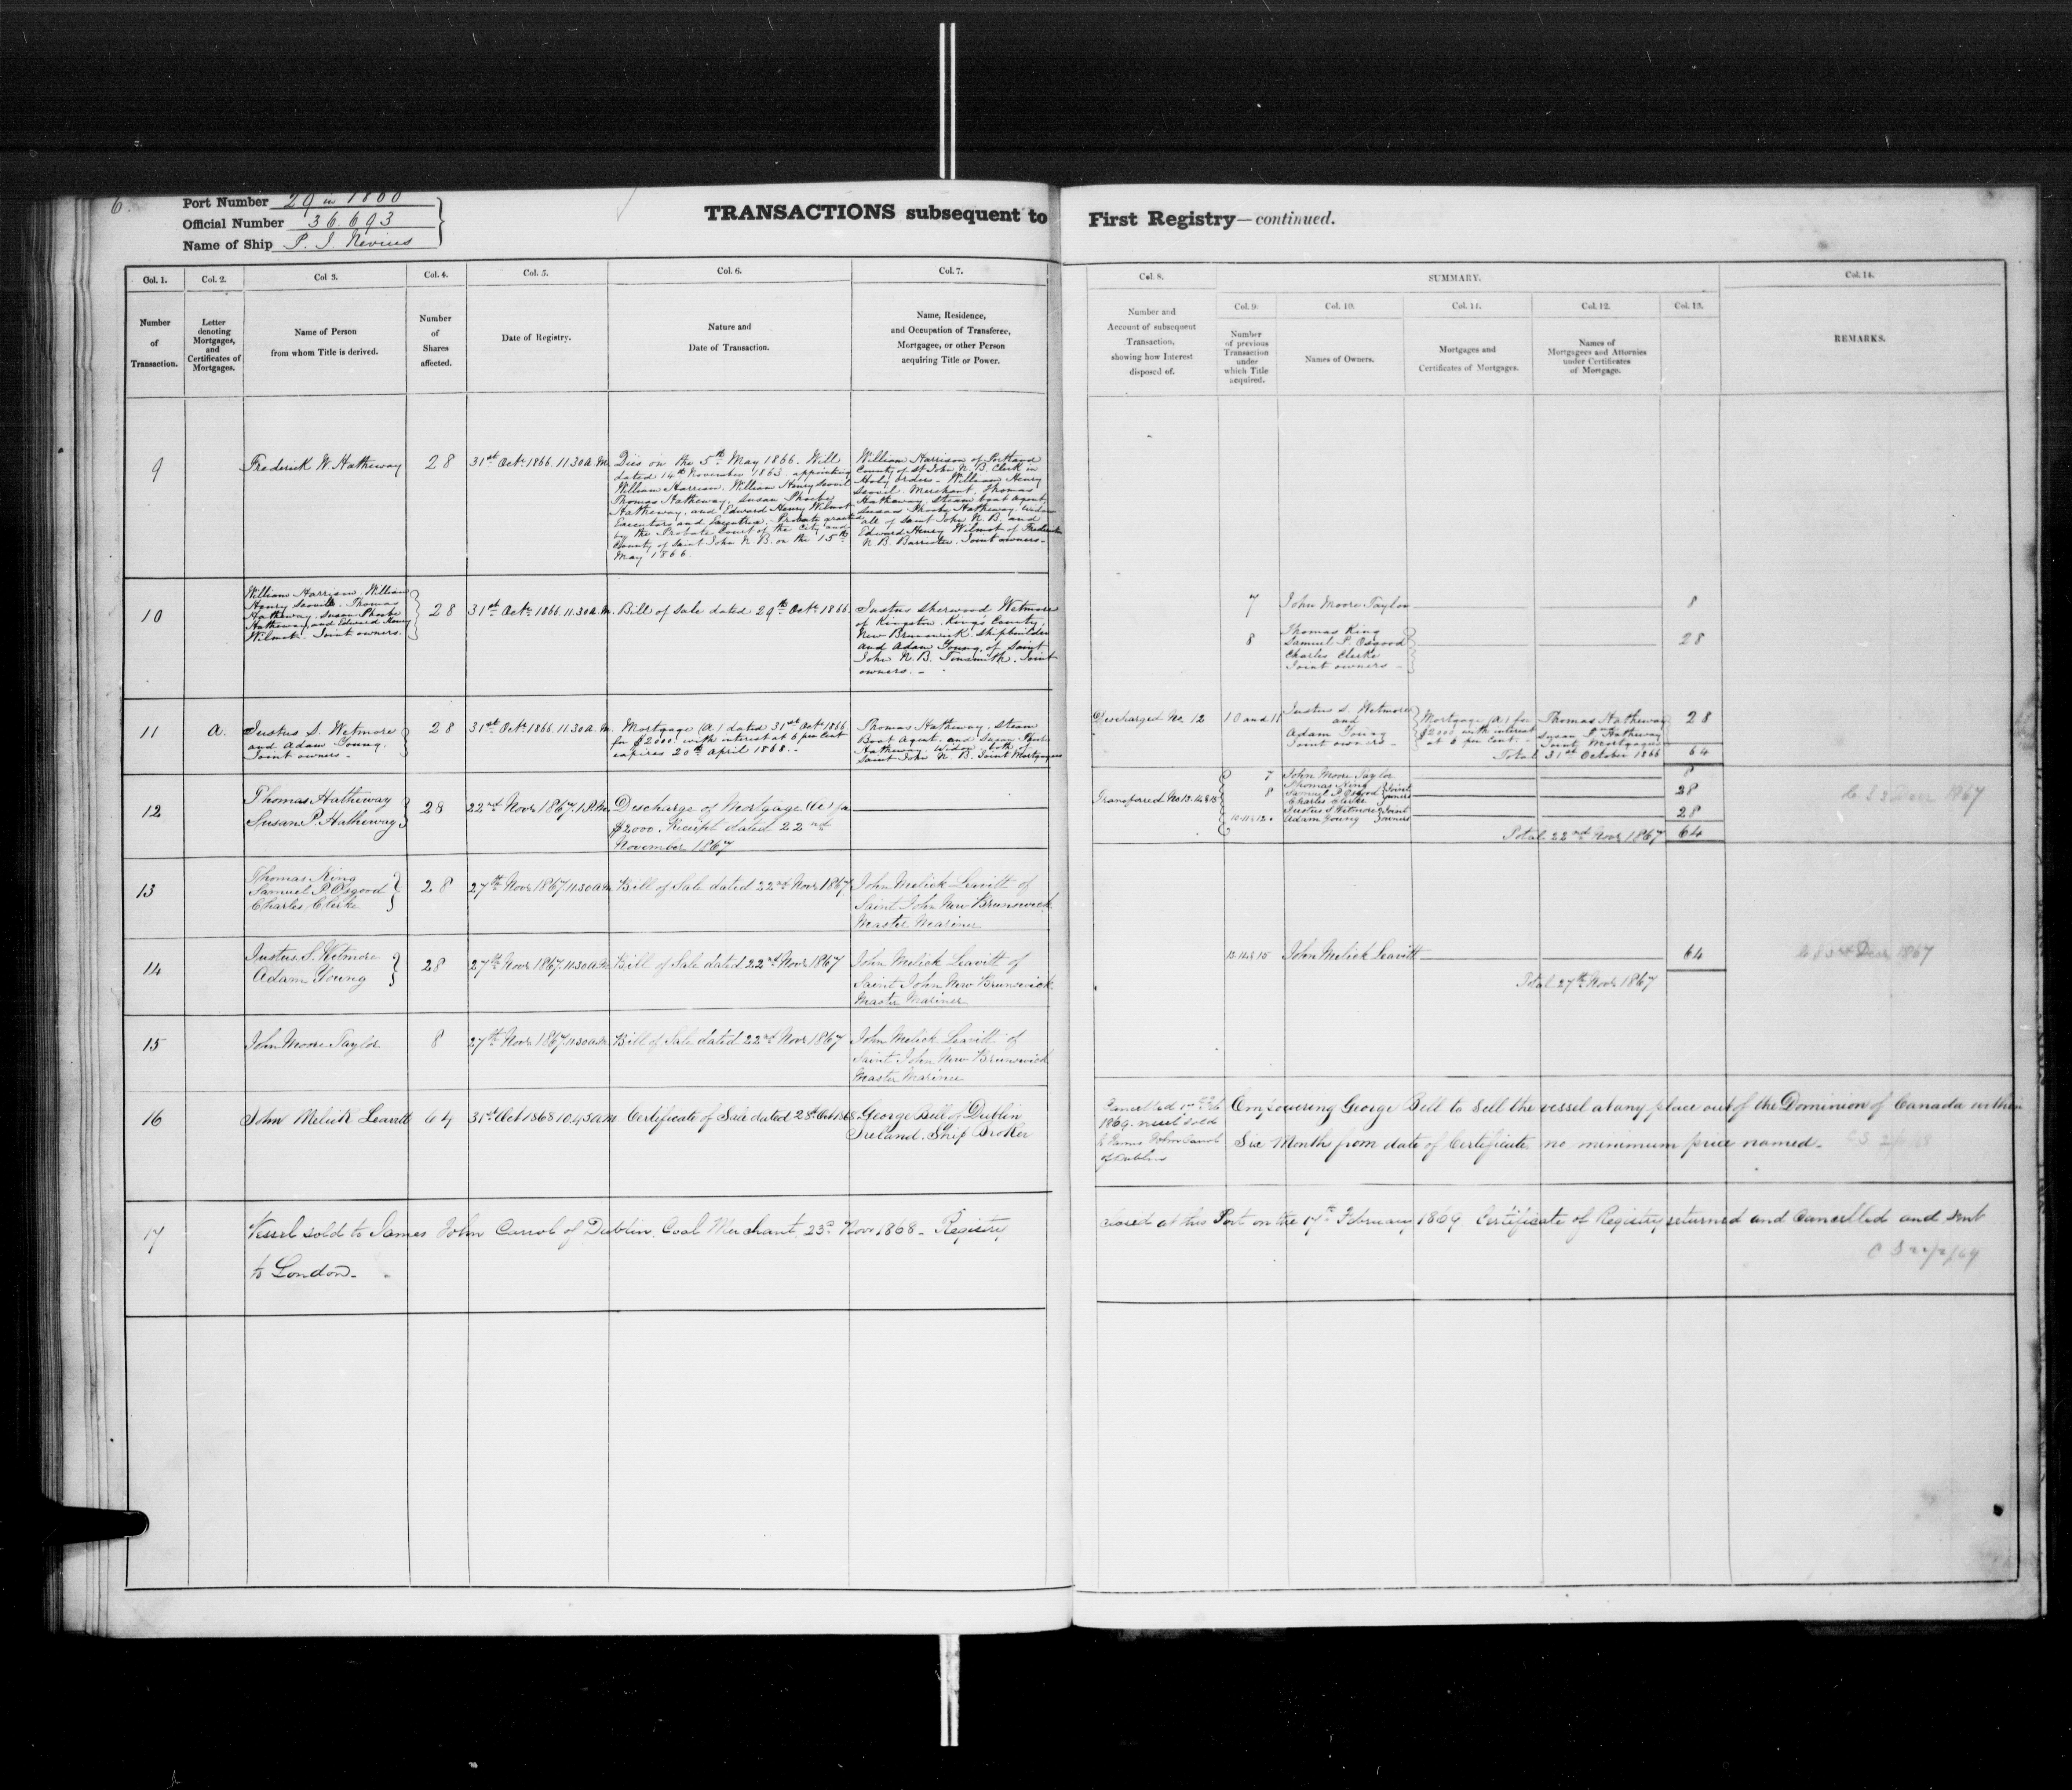 6.
Port Number 29 in 1860
Official Number 36.693
Name of Ship P. I. Nevius
TRANSACTIONS subsequent to First Registry—continued.
Col. 1.
Number
of
Transaction.
Col. 2.
Letter
denoting
Mortgages,
and
Certificates of
Mortgages.
Col 3.
Name of Person
from whom Title is derived.
Col. 4.
Number
of
Shares
affected.
Col. 5.
Date of Registry.
Col. 6.
Nature and
Date of Transaction.
Col. 7.
Name, Residence,
and Occupation of Transferee,
Mortgagee, or other Person
acquiring Title or Power.
Col. 8.
Number and
Account of subsequent
Transaction,
showing how Interest
disposed of.
SUMMARY.
Col. 9.
Number
of previous
Transaction
under
which Title
acquired.
Col. 10.
Names of Owners.
Col. 11.
Mortgages and
Certificates of Mortgages.
Col. 12.
Names of
Mortgagees and Attornies
under Certificates
of Mortgage.
Col. 13.
Col. 14.
REMARKS.
9
Frederick W. Hatheway
28
31st Octr 1866. 11.30 A.M.
Dies on the 5th May 1866. Will
dated 14th November 1863. appointing
William Harrison. William Henry Scovil
Thomas Hatheway, Susan Phoebe
Hatheway, and Edward Henry Wilmot
Executors and Executrix. Probate granted
by the Probate Court of the City and
County of Saint John N. B. on the 15th
May 1866.
William Harrison of Portland
County of St John N. B. Clerk in
Holy Orders - William Henry
Scovil. Merchant. Thomas
Hatheway. Steam boat Agent,
Susan Phoebe Hatheway. widow
all of Saint John N. B. and
Edward Henry Wilmot of Fredericton
N. B. Barrister. Joint owners -
10
William Harrison, William
Henry Scovil. Thomas
Hatheway, Susan Phoebe
Hatheway, and Edward Henry
Wilmot. Joint owners.
28
31st Octr 1866. 11.30 A.M.
Bill of Sale dated 29th Octr 1866.
Justus Sherwood Wetmore
of Kingston. Kings County,
New Brunswick. Shipbuilder
and Adam Young, of Saint
John N. B. Tinsmith. Joint
owners. -
7
John Moore Taylor
8
8
Thomas King
Samuel P. Osgood
Charles Clerke
Joint owners -
28
11
A.
Justus S. Wetmore
and Adam Young.
Joint owners -
28
31st Octr 1866. 11.30 A.M.
Mortgage (A) dated 31st Octr 1866
for $2000. with interest at 6 per cent
expires 20th April 1868. -
Thomas Hatheway. Steam
Boat Agent. and Susan Phoebe
Hatheway. Widow. both of
Saint John N. B. Joint Mortgagees
Discharged No. 12
10 and 11
Justus S. Wetmore
and
Adam Young
Joint owners -
Mortgage (A) for
$2000 with interest
at 6 per cent. -
Thomas Hatheway
Susan P. Hatheway
Joint Mortgagees
28
Total 31st October 1866
64
12
Thomas Hatheway
Susan P. Hatheway
28
22nd Novr 1867. 1 P.M.
Discharge of Mortgage (A) for
$2000. Receipt dated 22nd
November 1867
Transferred No 13. 14 & 15
7
John Moore Taylor
8
8
Thomas King
Samuel P. Osgood
Charles Clerke
Joint
owners
28
10. 11 & 12.
Justus S Wetmore
Adam Young
Joint
owners
28
Total 22nd Novr 1867
64
C S 3 Decr 1867
13
Thomas King
Samuel P. Osgood
Charles Clerke
28
27th Novr 1867. 11.30 A.M.
Bill of Sale dated 22nd Novr 1867
John Melick Leavitt of
Saint John New Brunswick
Master Mariner
14
Justus S. Wetmore
Adam Young
28
27th Novr 1867. 11.30 A.M.
Bill of Sale dated 22nd Novr 1867
John Melick Leavitt of
Saint John New Brunswick
Master Mariner
13. 14 & 15
John Melick Leavitt
64
Total 27th Novr 1867
Decr 1867
15
John Moore Taylor
8
27th Novr 1867. 11.30 A.M.
Bill of Sale dated 22nd Novr 1867
John Melick Leavitt of
Saint John New Brunswick
Master Mariner
16
John Melick Leavitt
64
31st Oct 1868 10.45 A.M.
Certificate of Sale dated 28th Oct 1868
George Bell of Dublin
Ireland. Ship Broker
Cancelled
1869. vessel sold
to James John Carrol
of Dublin
Empowering George Bell to Sell the vessel at any place out of the Dominion of Canada within
Six Month from date of Certificate. no minimum price named -
17
Vessel sold to James John Carrol of Dublin. Coal Merchant. 23d Nov 1868 - Registry
closed at this Port on the 17th February 1869 Certificate of Registry returned and Cancelled and sent
to London -